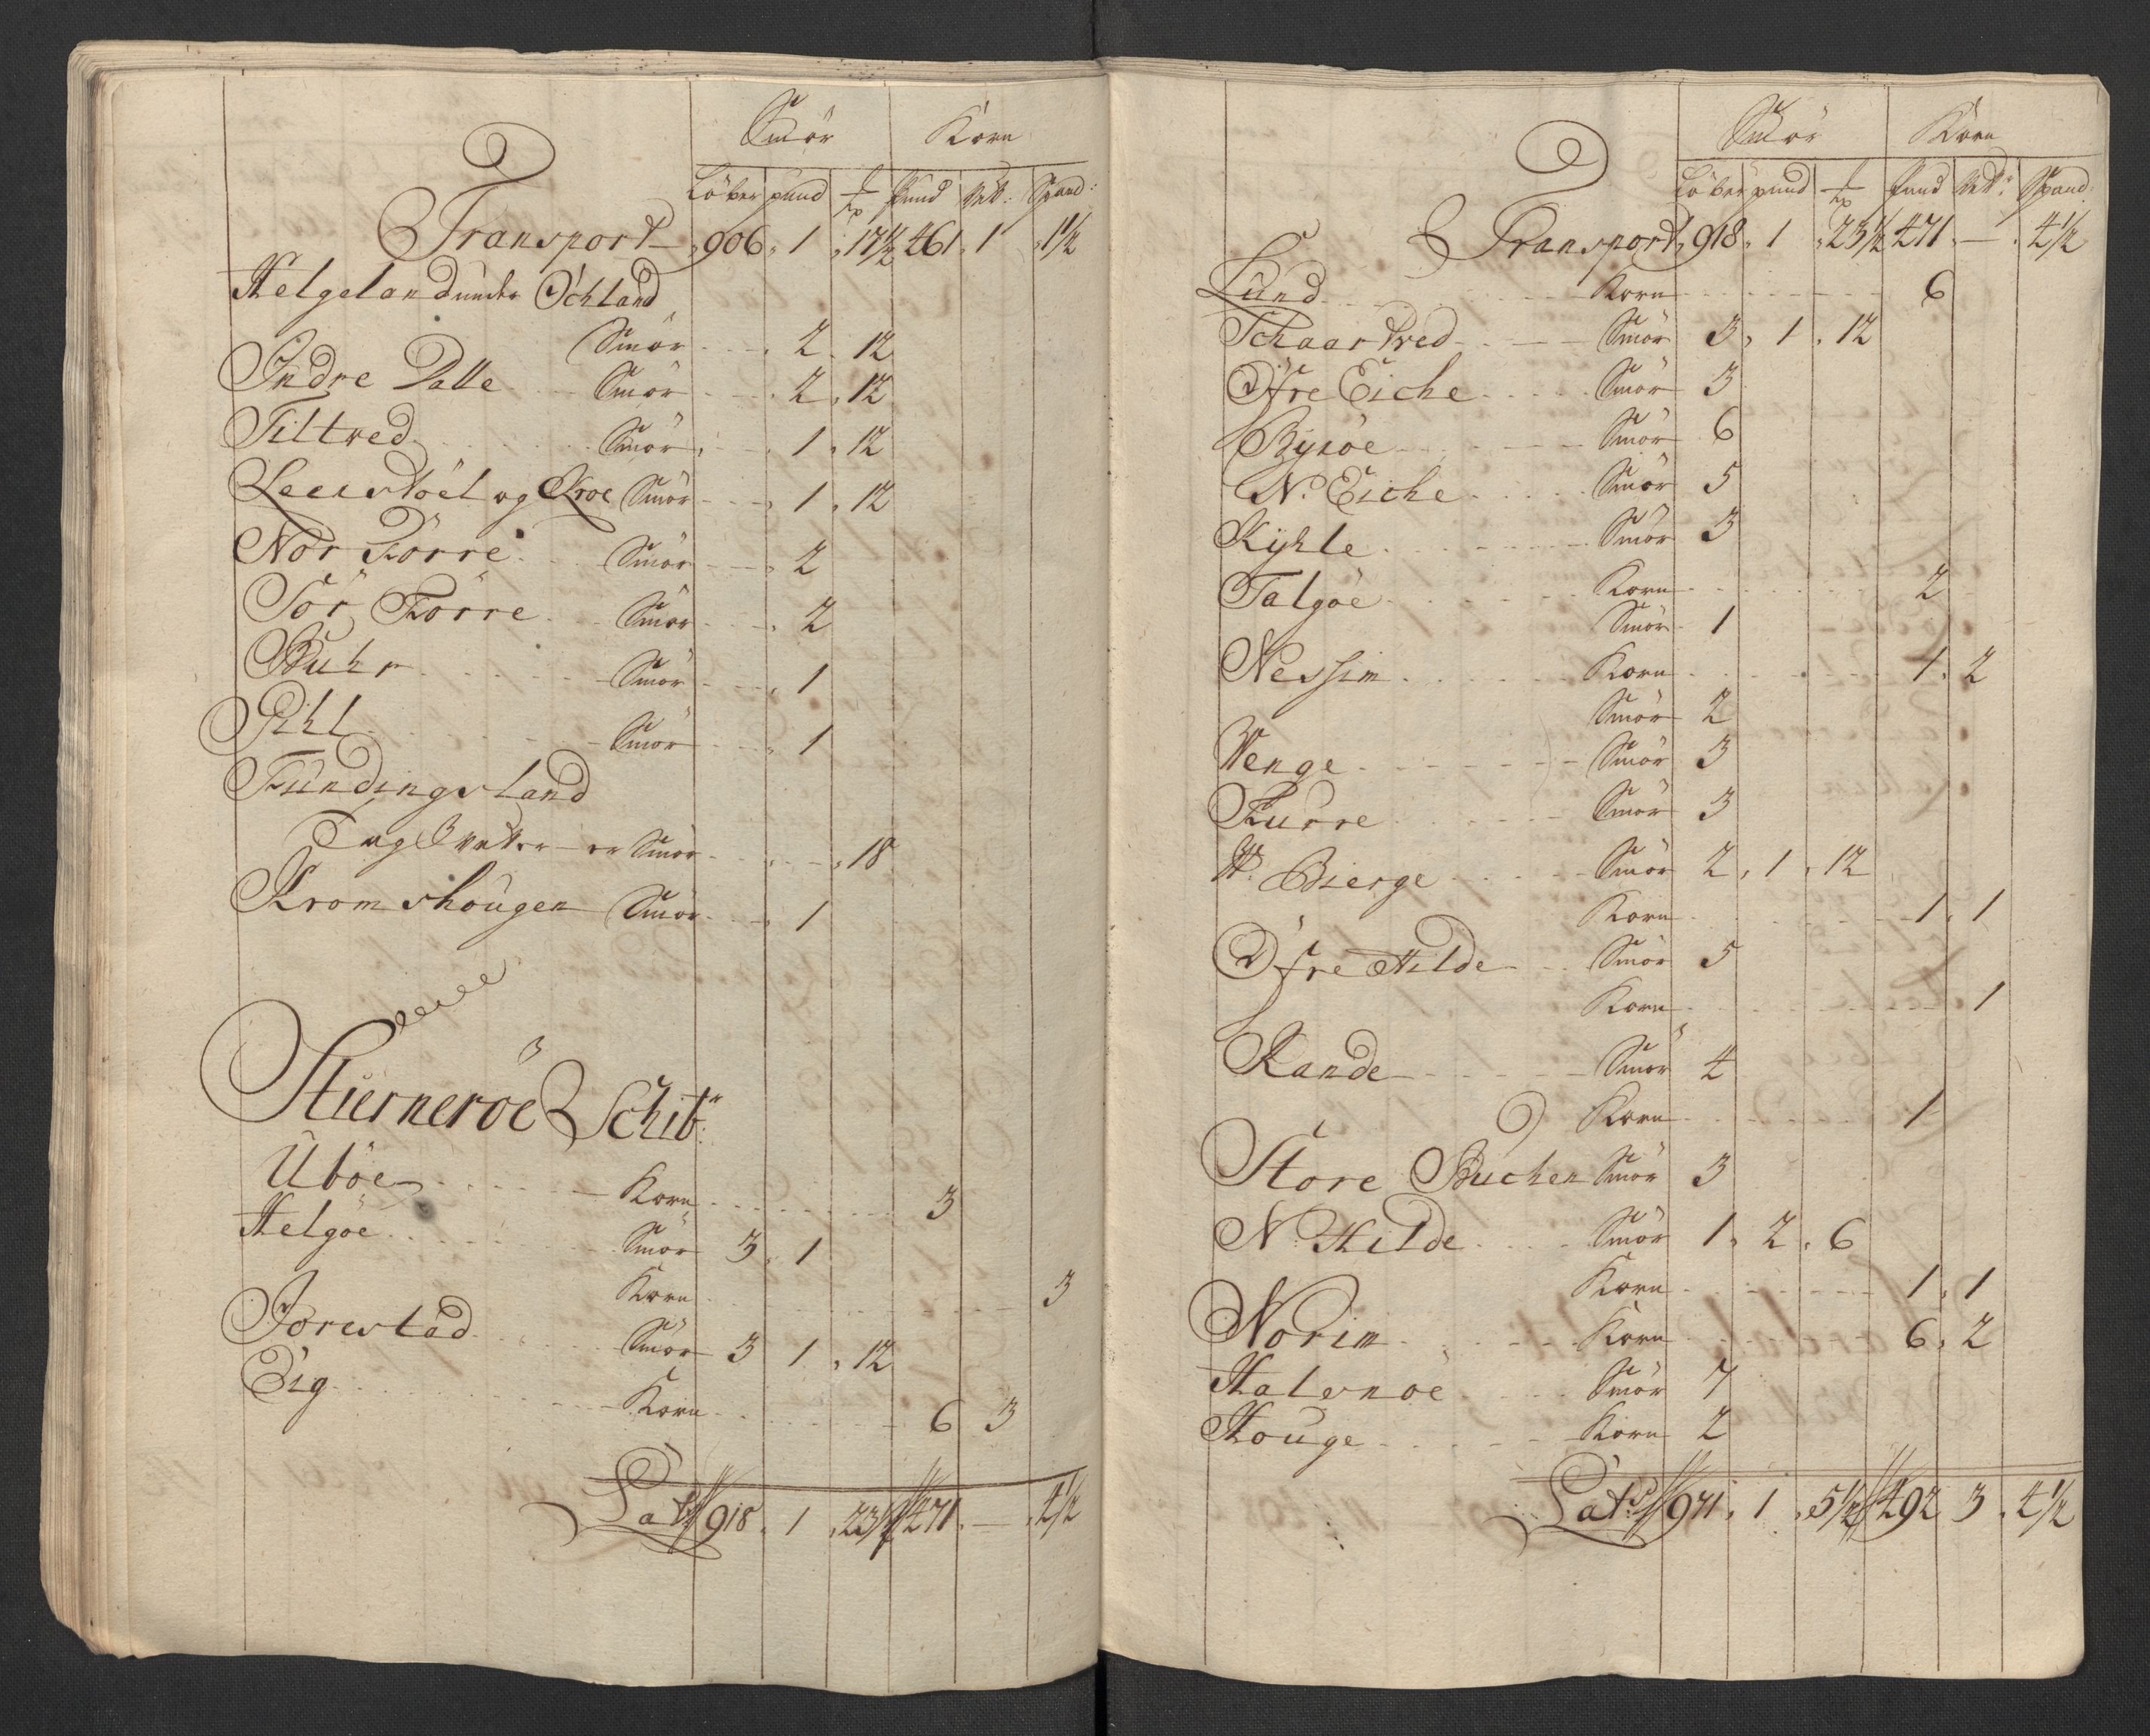 Smör Korn
Löber pund ℔ Pund Vet: Spand:
Transport 906. 1 . 17½ 461. 1 1½
Helgeland under Öchland
Smör 2. 12
Indre Dalle Smör 2. 12
Tiltved Smör 1. 12
Leerstöel og Kroe Smör 1. 12
Nor Förre Smör 2
Sör Förre Smör 2
Buhr Smör 1
Pihl Smör 1
Fündingsland
Smör 18
Kromshougen Smör 1
Stierneröe Schib:r
Uböe Korn 3
Helgöe Smör 3. 1
Korn 3
Jorestad Smör 3 1. 12
Eig Korn 6 3
Lat:s 918. 1 . 23½ 471. — . 4½
Smör Korn
Löber pund ℔ Pund Vet: Spand:
Transport 918. 1 . 23½ 471. — . 4½
Lünd Korn 6
Schaartved Smör 3. 1. 12
Öfre Eiche Smör 3
Byröe Smör 6
N: Eiche Smör 5
Kyhle Smör 3
Talgöe Korn 2
Smör 1
Nessim Korn 1. 2
Smör 2
Venge Smör 3
Furre Smör 3
W. Bierge Smör 2. 1. 12
Korn 1. 1
Öfre Hilde Smör 5
Korn 1
Rande Smör 4
Korn 1
Store Buchen Smör 3
N: Hilde Smör 1. 2. 6
Korn 1. 1
Norim Korn 6. 2
Halsnöe Smör 7
Houge Korn 2
Lat:s 971. 1 . 5½ 492 3 . 4½